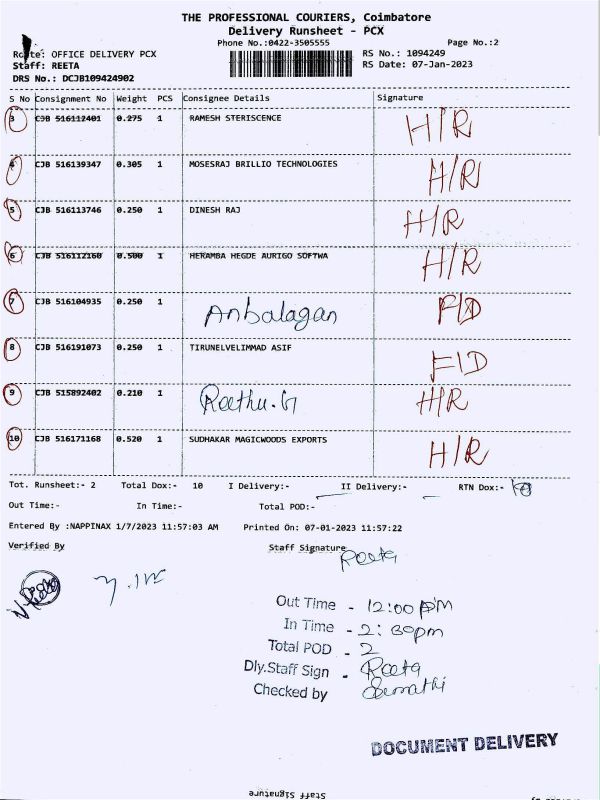 THE PROFESSIONAL COURIERS, Coimbatore
Delivery Runsheet - PCX
Phone No.:0422-3505555 Page No.:2
Route: OFFICE DELIVERY PCX RS No.: 1094249
Staff: REETA RS Date: 07-Jan-2023
DRS No.: DCJB109424902
S No Consignment No Weight PCS Consignee Details Signature
3 CJB 516112401 0.275 1 RAMESH STERISCENCE H/R
4 CJB 516139347 0.305 1 MOSESRAJ BRILLIO TECHNOLOGIES H/R
5 CJB 516113746 0.250 1 DINESH RAJ H/R
6 CJB 516112160 0.500 1 HERAMBA HEGDE AURIGO SOFTWA H/R
7 CJB 516104935 0.250 1 Anbalagan F/D
8 CJB 516191073 0.250 1 TIRUNELVELIMMAD ASIF F/D
9 CJB 515892402 0.210 1 Reethu.G H/R
10 CJB 516171168 0.520 1 SUDHAKAR MAGICWOODS EXPORTS H/R
Tot. Runsheet:- 2 Total Dox:- 10 I Delivery:- II Delivery:- RTN Dox:-
Out Time:- In Time:- Total POD:-
Entered By :NAPPINAX 1/7/2023 11:57:03 AM Printed On: 07-01-2023 11:57:22
Verified By Staff Signature
Reeta
Out Time - 12:00 PM
In Time - 2:30pm
Total POD - 2
Dly.Staff Sign - Reeta
Checked by
DOCUMENT DELIVERY
Staff Signature